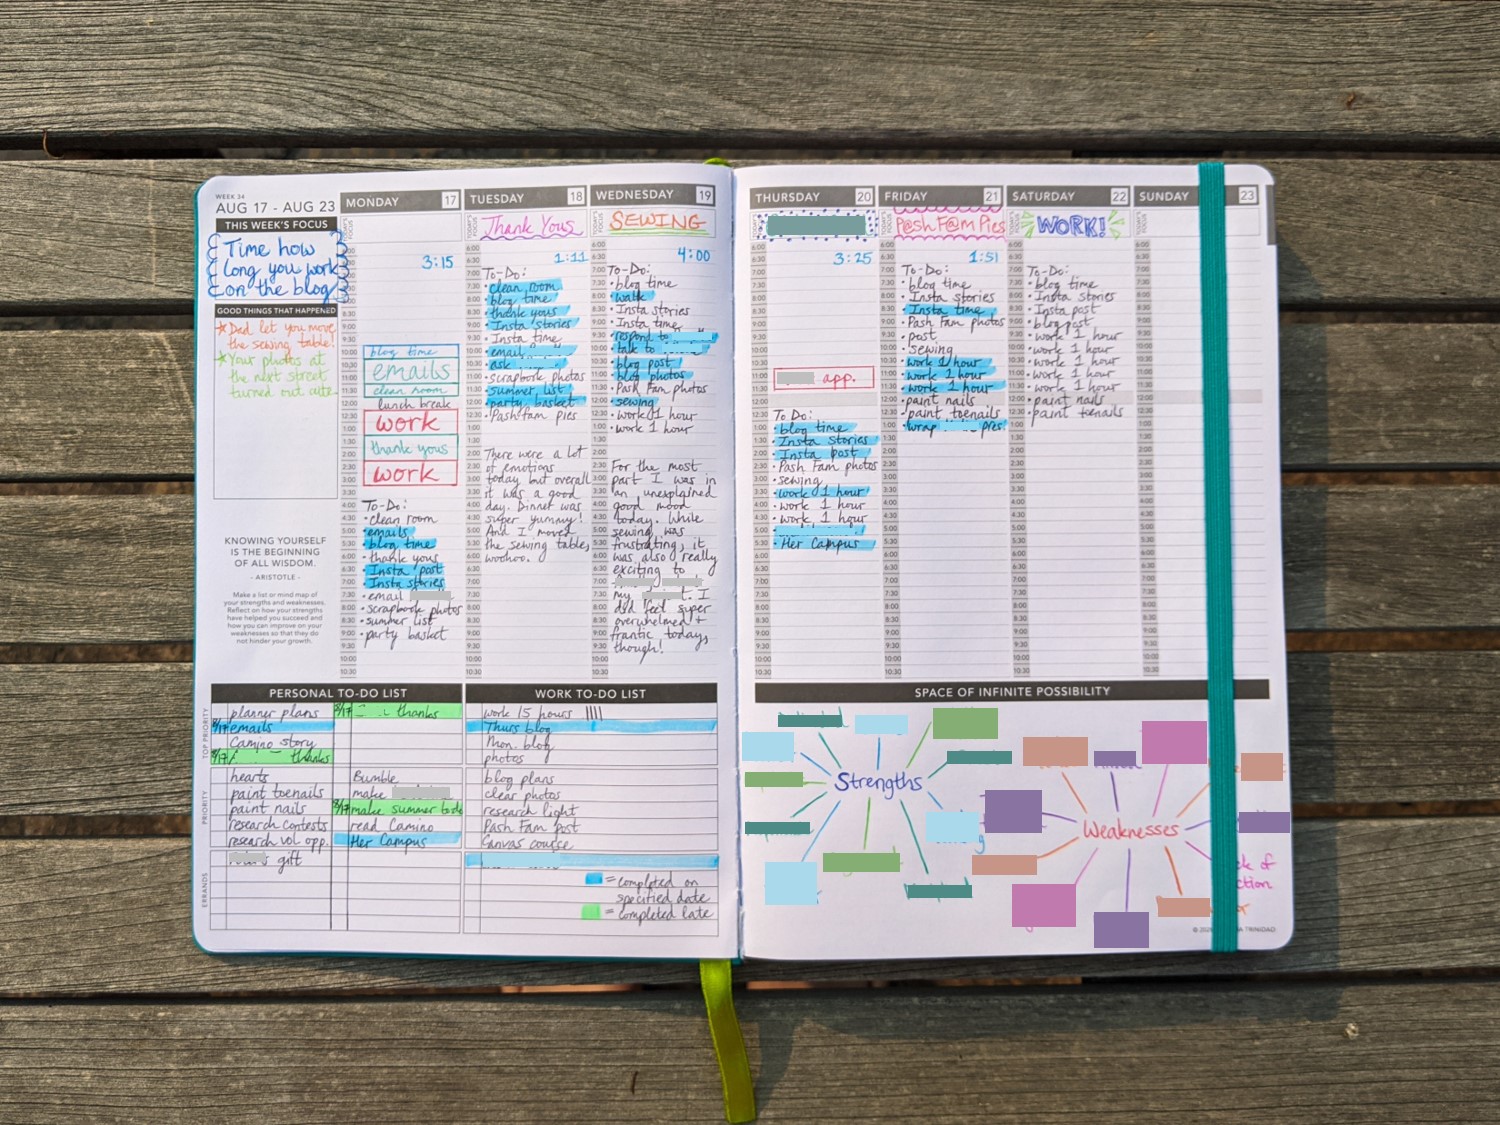 WEEK 34
AUG 17 - AUG 23
THIS WEEK'S FOCUS
Time how
long you work
on the blog
GOOD THINGS THAT HAPPENED
Dad let you move
the sewing table!
Your photos at
the next street
turned out cute
KNOWING YOURSELF
IS THE BEGINNING
OF ALL WISDOM.
- ARISTOTLE -
Make a list or mind map of
your strengths and weaknesses.
Reflect on how your strengths
have helped you succeed and
how you can improve on your
weaknesses so that they do
not hinder your growth.
MONDAY 17
3:15
blog time
emails
clean room
lunch break
work
thank yous
work
To-Do:
• clean room
• emails
• blog time
• thank yous
• Insta post
• Insta stories
• email
• scrapbook photos
• summer list
• party basket
TUESDAY 18
Thank Yous
1:11
To-Do:
• clean room
• blog time
• thank yous
• Insta stories
• Insta time
• email
• ask
• scrapbook photos
• summer list
• party basket
• Pash fam pies
There were a lot
of emotions
today but overall
it was a good
day. Dinner was
super yummy!
And I moved
the sewing table,
woohoo.
WEDNESDAY 19
SEWING
4:00
To-Do:
• blog time
• walk
• Insta stories
• Insta time
• respond to
• talk to
• blog post
• blog photos
• Pash Fam photos
• sewing
• work 1 hour
• work 1 hour
For the most
part I was in
an unexplained
good mood
today. While
sewing was
frustrating, it
was also really
exciting to
my I
did feel super
overwhelmed +
frantic today,
though!
THURSDAY 20
3:25
app.
To Do:
• blog time
• Insta stories
• Insta post
• Pash Fam photos
• sewing
• work 1 hour
• work 1 hour
• work 1 hour
• Her Campus
FRIDAY 21
P@sh F@m Pies
1:51
To-Do:
• blog time
• Insta stories
• Insta time
• Pash Fam photos
• post
• sewing
• work 1 hour
• work 1 hour
• work 1 hour
• paint nails
• paint toenails
• wrap pres.
SATURDAY 22
WORK!
To-Do:
• blog time
• Insta stories
• Insta post
• blog post
• work 1 hour
• work 1 hour
• work 1 hour
• work 1 hour
• work 1 hour
• paint nails
• paint toenails
SUNDAY 23
PERSONAL TO-DO LIST
TOP PRIORITY
planner plans
8/17 emails
Camino story
8/17 thanks
8/17 thanks
PRIORITY
hearts
paint toenails
paint nails
research contests
research vol opp.
Bumble
make
8/17 make summer to do
read Camino
Her Campus
ERRANDS
gift
WORK TO-DO LIST
work 15 hours
Thurs blog
Mon. blog
photos
blog plans
clear photos
research light
Pash Fam post
Canvas course
= completed on
specified date
= completed late
SPACE OF INFINITE POSSIBILITY
Strengths
Weaknesses
TRINIDAD